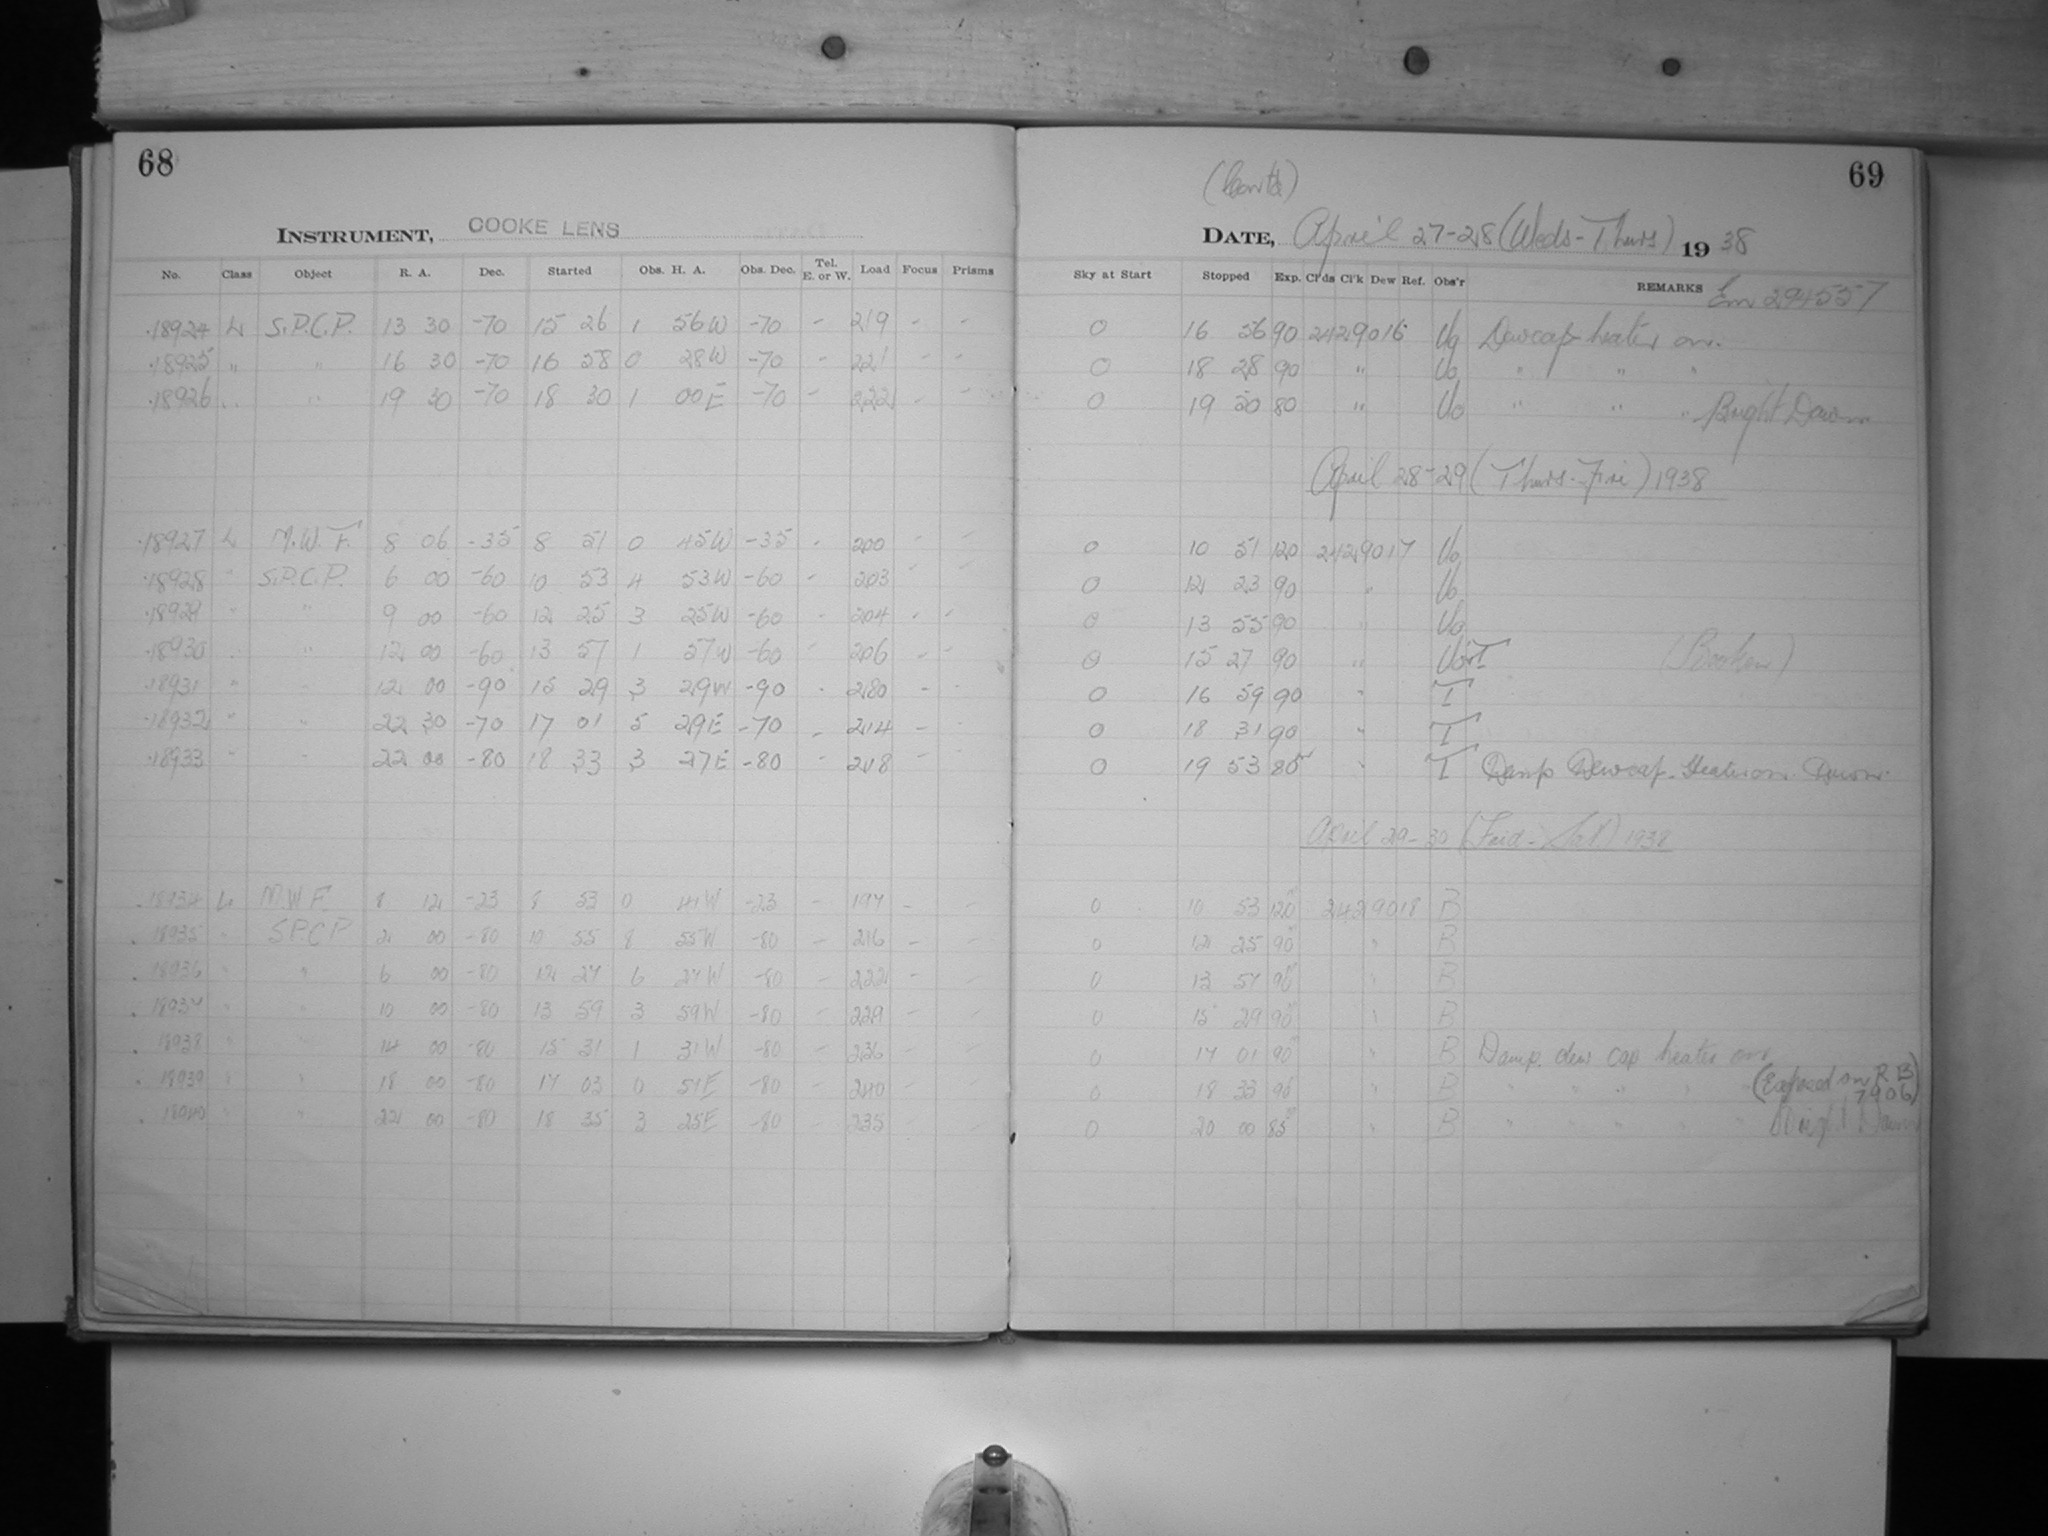 68
INSTRUMENT, COOKE LENS
No. Class Object R. A. Dec. Started Obs. H. A. Obs. Dec. Tel. E. or W. Load Focus Prisms
18924 L S.P.C.P. 13 30 -70 15 26 1 56W -70 - 219 - -
18925 " " 16 30 -70 16 58 0 28W -70 - 221 - -
18926 " " 19 30 -70 18 30 1 00E -70 - 222 - -
18927 L M.W.F. 8 06 -35 8 51 0 45W -35 - 200 - -
18928 " S.P.C.P. 6 00 -60 10 53 4 53W -60 - 203 - -
18929 " " 9 00 -60 12 25 3 25W -60 - 204 - -
18930 " " 12 00 -60 13 57 1 57W -60 - 206 - -
18931 " " 12 00 -90 15 29 3 29W -90 - 280 - -
18932 " " 22 30 -70 17 01 5 29E -70 - 214 - -
18933 " " 22 00 -80 18 33 3 27E -80 - 218 - -
18934 L M.W.F. 8 12 -23 8 53 0 41W -23 - 197 - -
18935 " S.P.C.P. 2 00 -80 10 55 8 55W -80 - 216 - -
18936 " " 6 00 -80 12 27 6 27W -80 - 222 - -
18937 " " 10 00 -80 13 59 3 59W -80 - 229 - -
18938 " " 14 00 -80 15 31 1 31W -80 - 236 - -
18939 " " 18 00 -80 17 03 0 57E -80 - 240 - -
" " 22 00 -80 18 35 3 25E -80 - 235 - -
69
(Cont'd)
DATE, April 27-28 (Weds-Thurs) 1938
Sky at Start Stopped Exp. Cl'ds Cl'k Dew Ref. Obs'r REMARKS Em 294557
0 16 56 90 2429016 Uo Dewcap heater on.
0 18 28 90 " Uo " " "
0 19 50 80 " Uo " " " Bright Dawn
April 28-29 (Thurs-Fri) 1938
0 10 51 120 2429017 Uo
0 12 23 90 " Uo
0 13 55 90 " Uo
0 15 27 90 " Uo+T (Broken)
0 16 59 90 " T
0 18 31 90 " T
0 19 53 80 " T Damp Dewcap Heater on Dawn.
April 29-30 (Frid-Sat) 1938
0 10 53 120 2429018 B
0 12 25 90 " B
0 13 57 90 " B
0 15 29 90 " B
0 17 01 90 " B Damp. dew cap heater on
0 18 33 90 " B " " " " (Exposed on R B 7906)
0 20 00 85 " B " " " " Bright Dawn